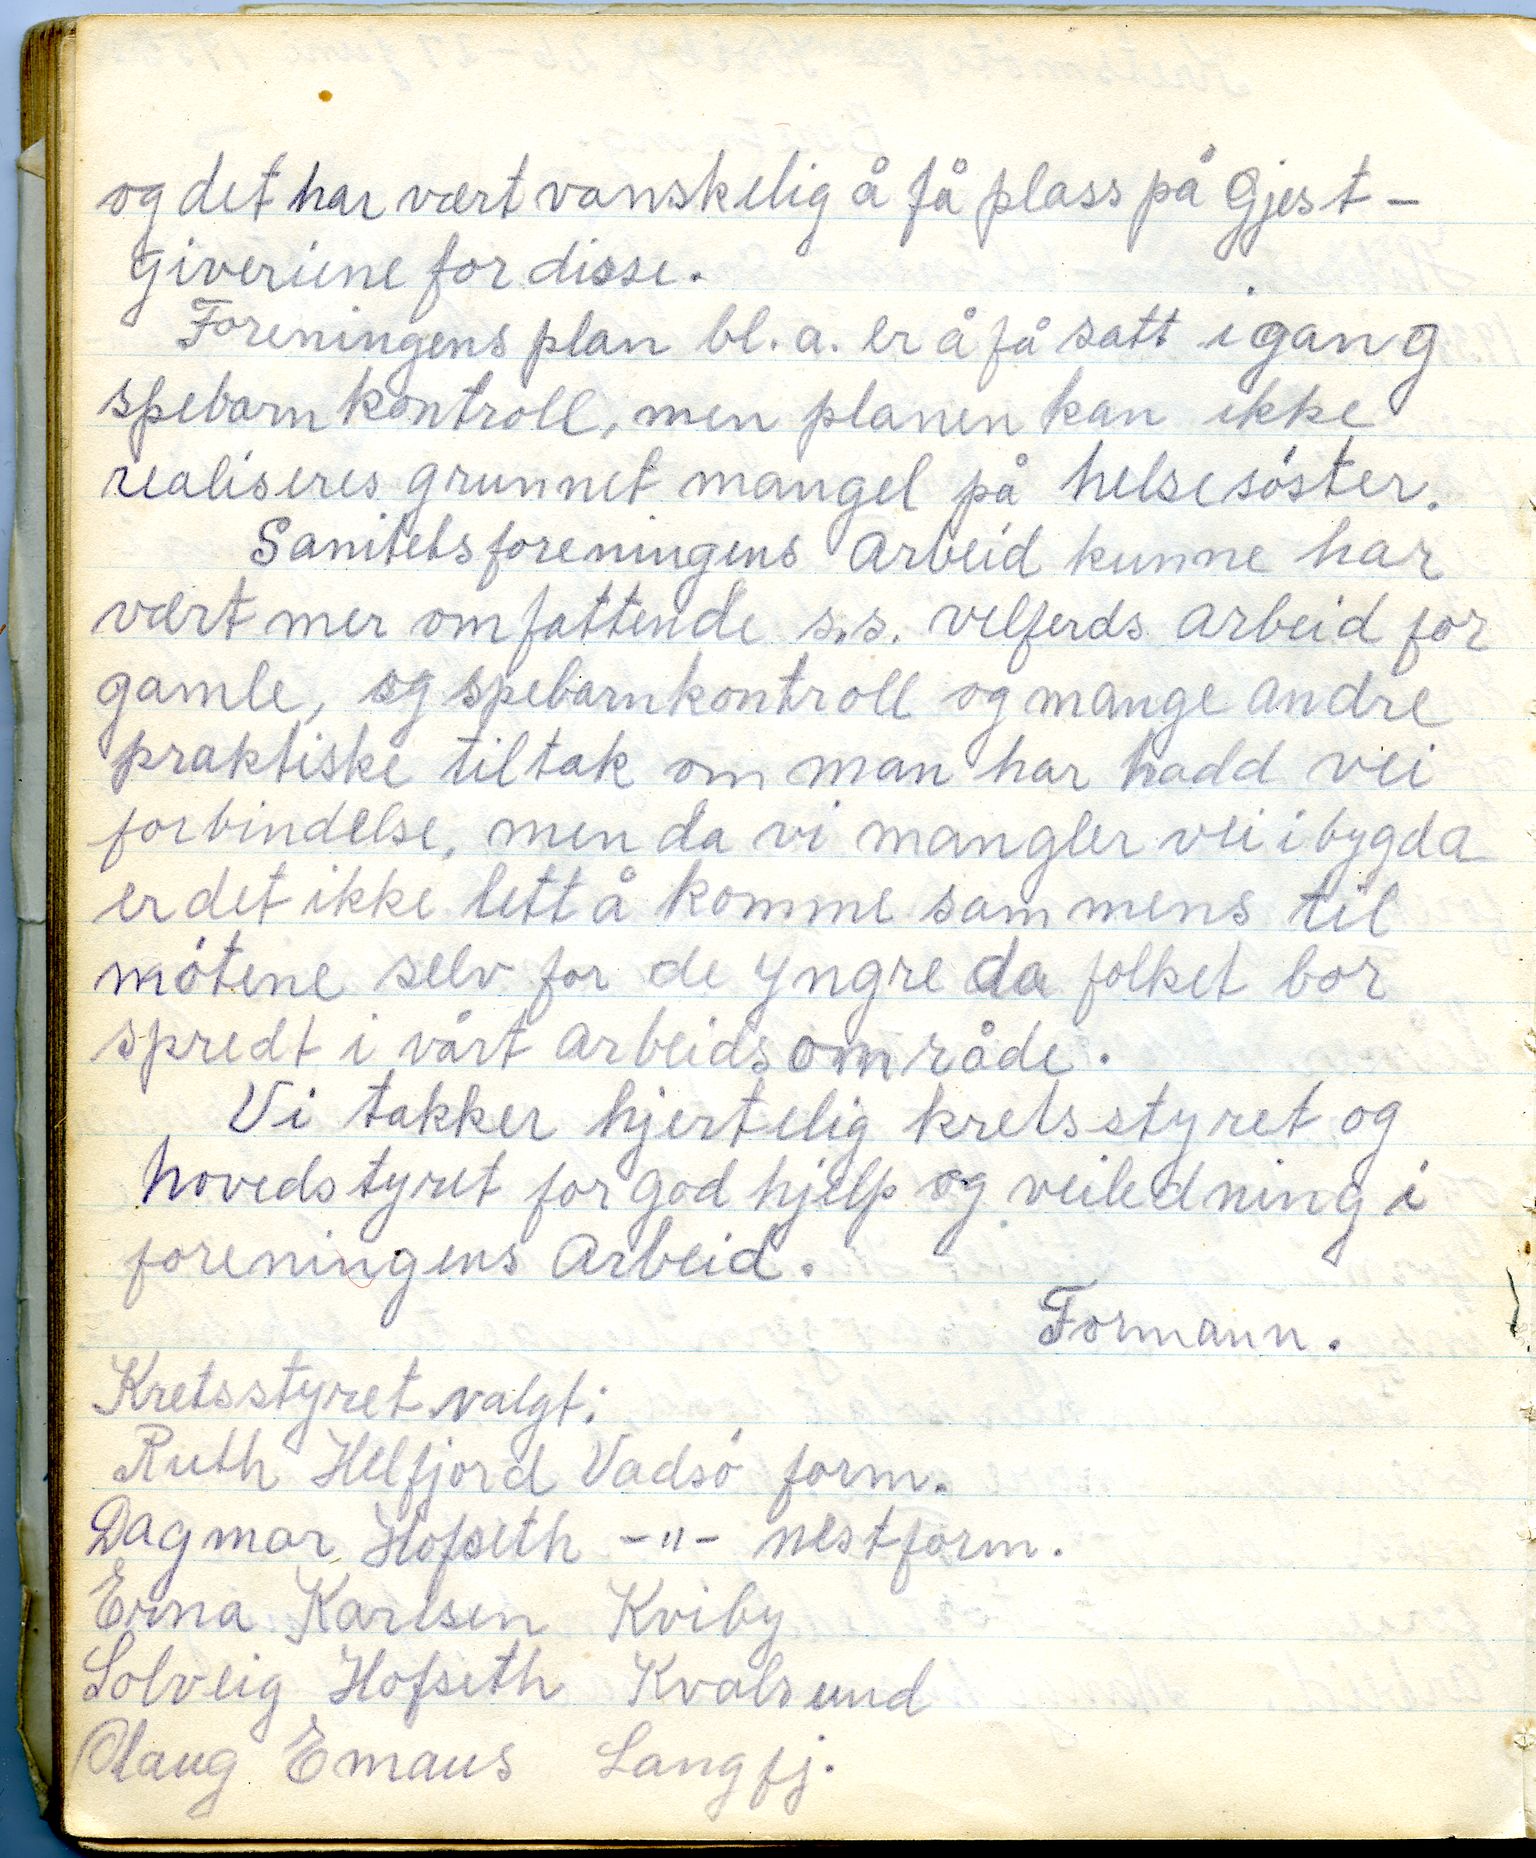 og det har vært vanskelig å få plass på Gjest-
giveriene for disse.
Foreningens plan bl. a. er å få satt igang
spebarnkontroll, men planen kan ikke
realiseres grunnet mangel på helsesöster.
Sanitetsforeningens arbeid kunne har
vært mer omfattende s.s. velferds arbeid for
gamle, og spebarnkontroll og mange andre
praktiske tiltak om man har hadd vei
forbindelse, men da vi mangler vei i bygda
er det ikke lett å komme sammens til
mötene selv for de yngre da folket bor
spredt i vårt arbeidsområde.
Vi takker hjertelig kretsstyret og
hovedstyret for god hjelp og veiledning i
foreningens arbeid.
Formann.
Kretsstyret valgt:
Ruth Helfjord Vadsö form.
Dagmar Hofseth -"- nestform.
Erna Karlsen Kviby
Solveig Hofseth Kvalsund
Olaug Emaus Langfj.